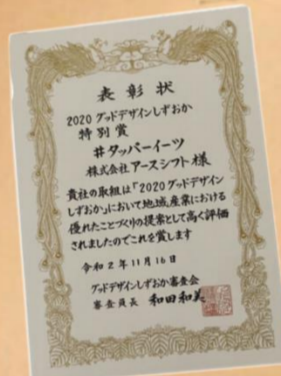 表彰状
2020 グッドデザインしずおか
特別賞
#タッパーイーツ
株式会社アースシフト 様
貴社の取組は「2020グッドデザイン
しずおか」において地域産業における
優れたことづくりの提案として高く評価
されましたのでこれを賞します
令和2年11月16日
グッドデザインしずおか審査会
審査員長 和田和美